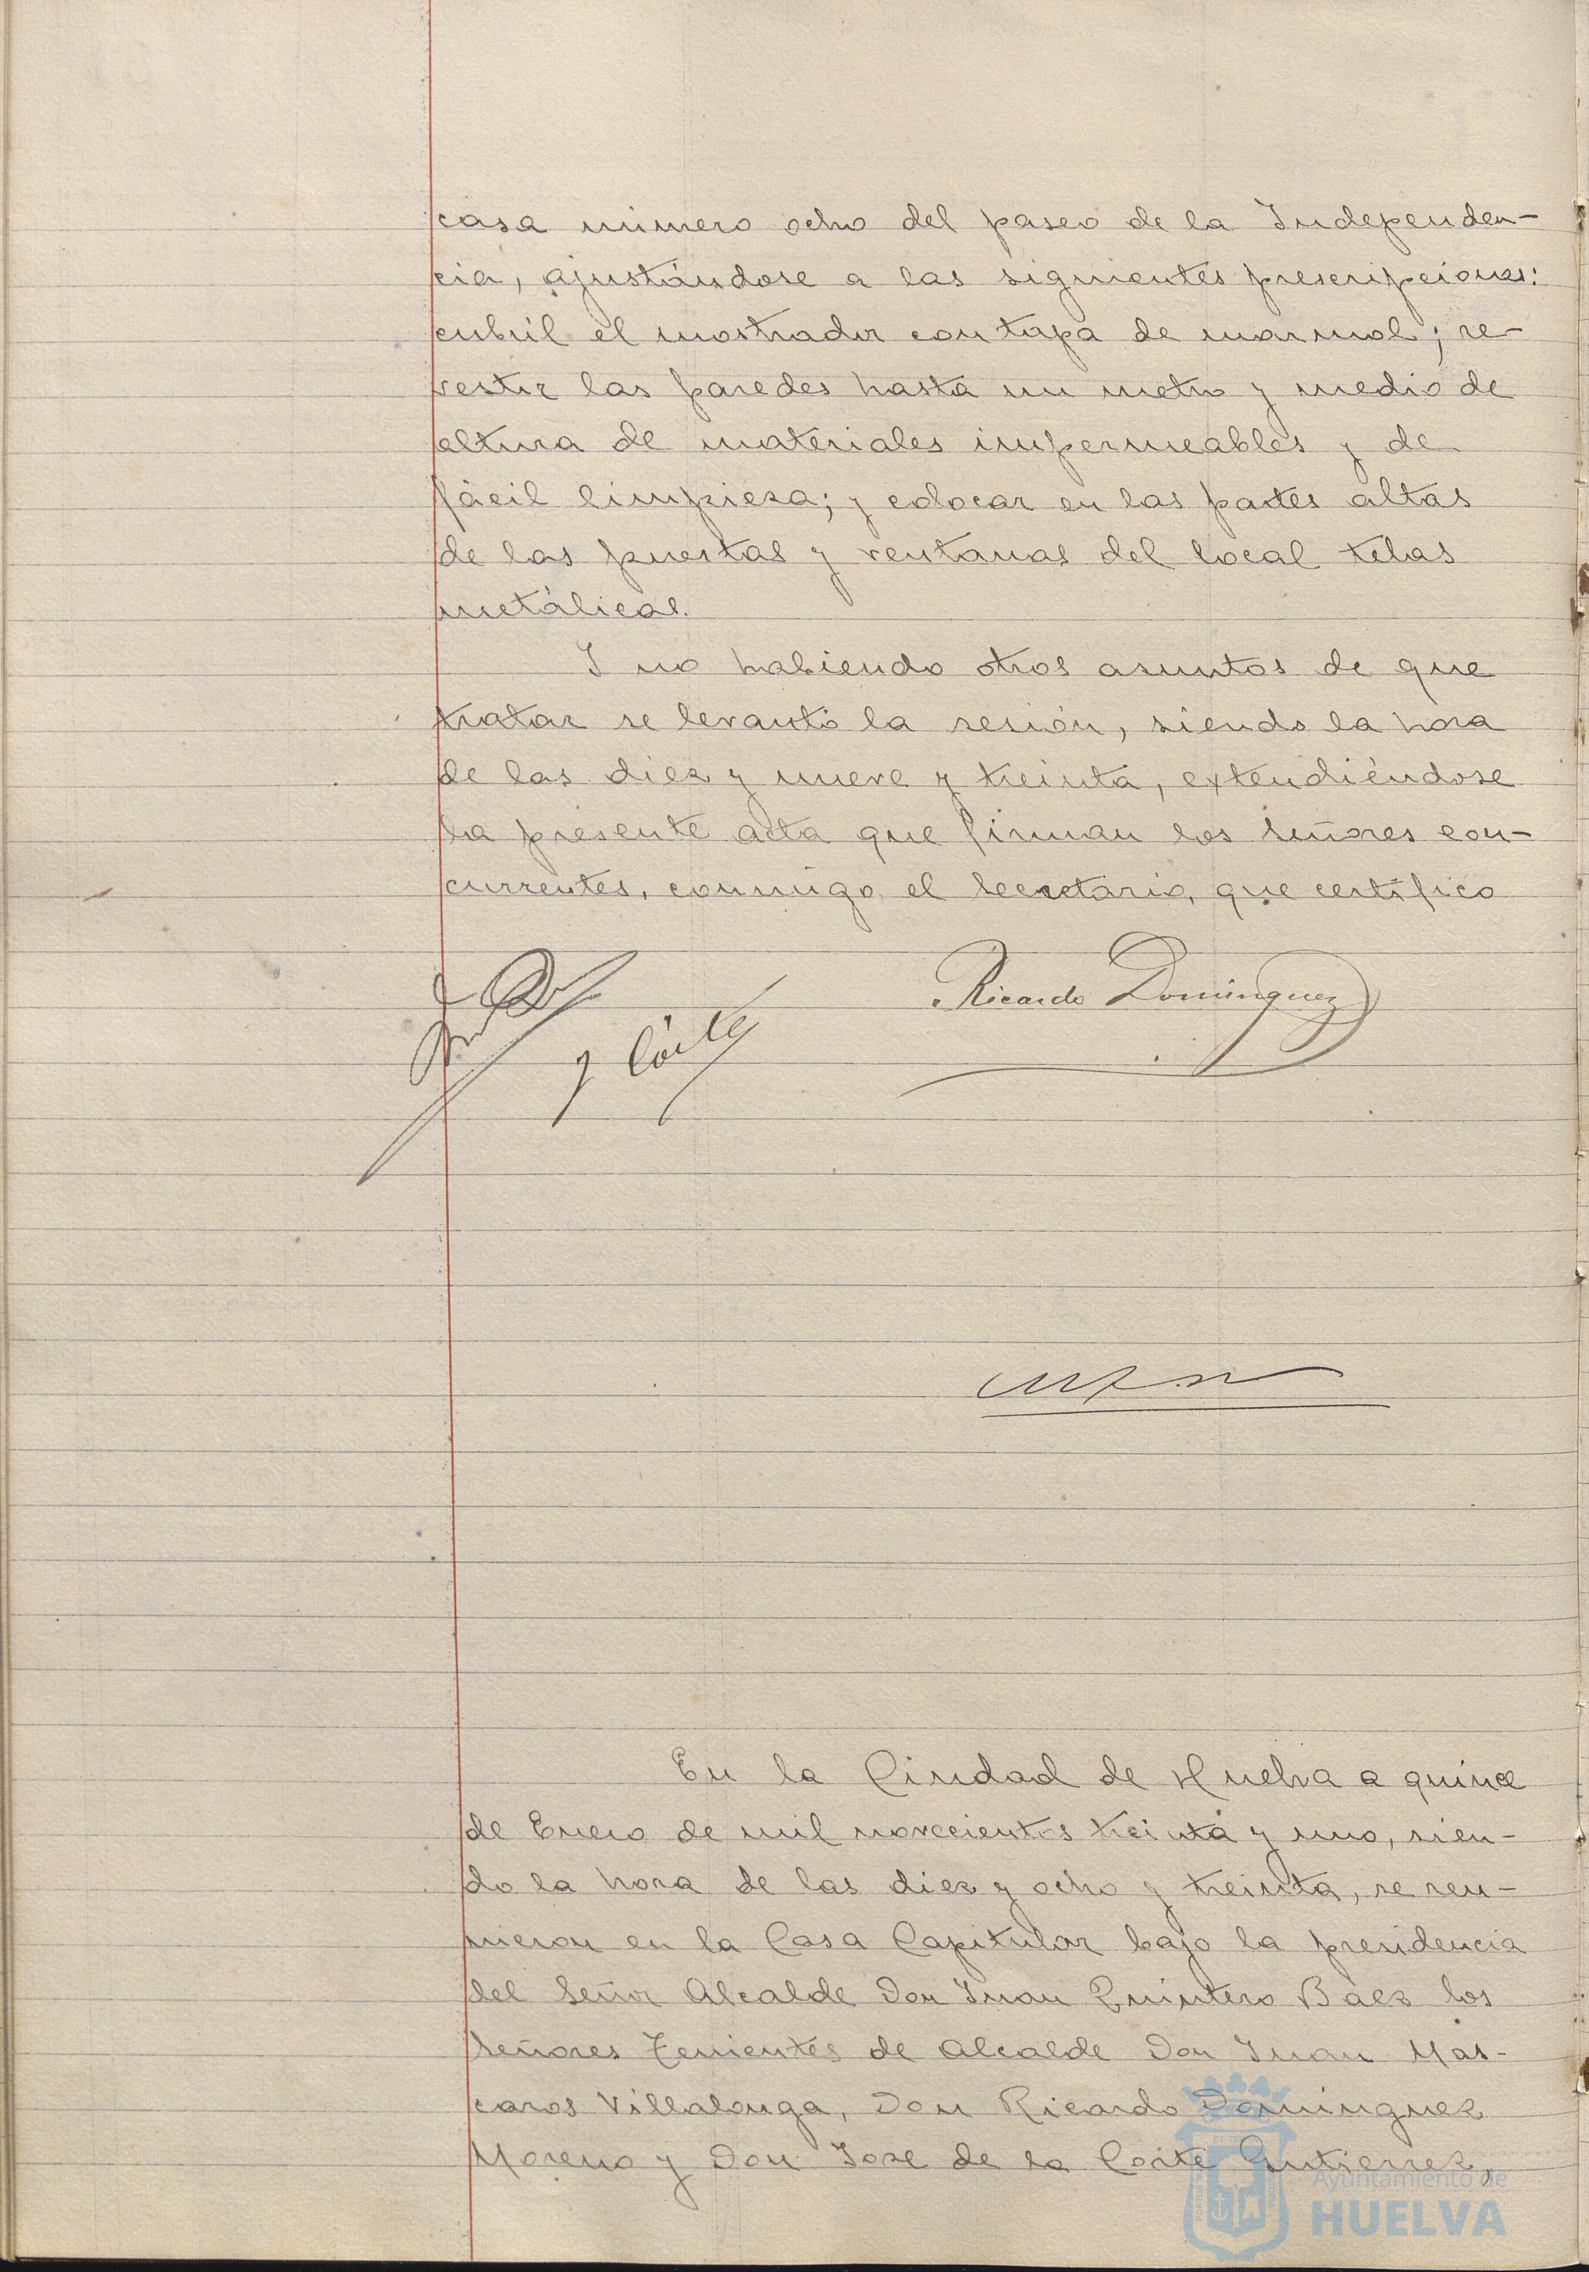 casa número ocho del paseo de la Independen-
cia, ajustándose a las siguientes prescripciones:
cubril el mostrador con tapa de marmol; re-
vestir las paredes hasta un metro y medio de
altura de materiales impermeables y de
fácil limpieza; y colocar en las partes altas
de las puertas y ventanas del local telas
metálicas.
Y no habiendo otros asuntos de que
tratar se levantó la sesión, siendo la hora
de las diez y nueve y treinta, extendiéndose
la presente acta que firman los señores con-
currentes, conmigo el Secretario, que certifico
Ricardo Dominguez
En la Ciudad de Huelva a quince
de Enero de mil novecientos treinta y uno, sien-
do la hora de las diez y ocho y treinta, se reu-
nieron en la Casa Capitular bajo la presidencia
del Señor Alcalde Don Juan Quintero Báez los
señores Tenientes de Alcalde Don Juan Mas-
caros Villalonga, Don Ricardo Dominguez
Moreno y Don Jose de la Corte Gutierrez,
Ayuntamiento de
HUELVA